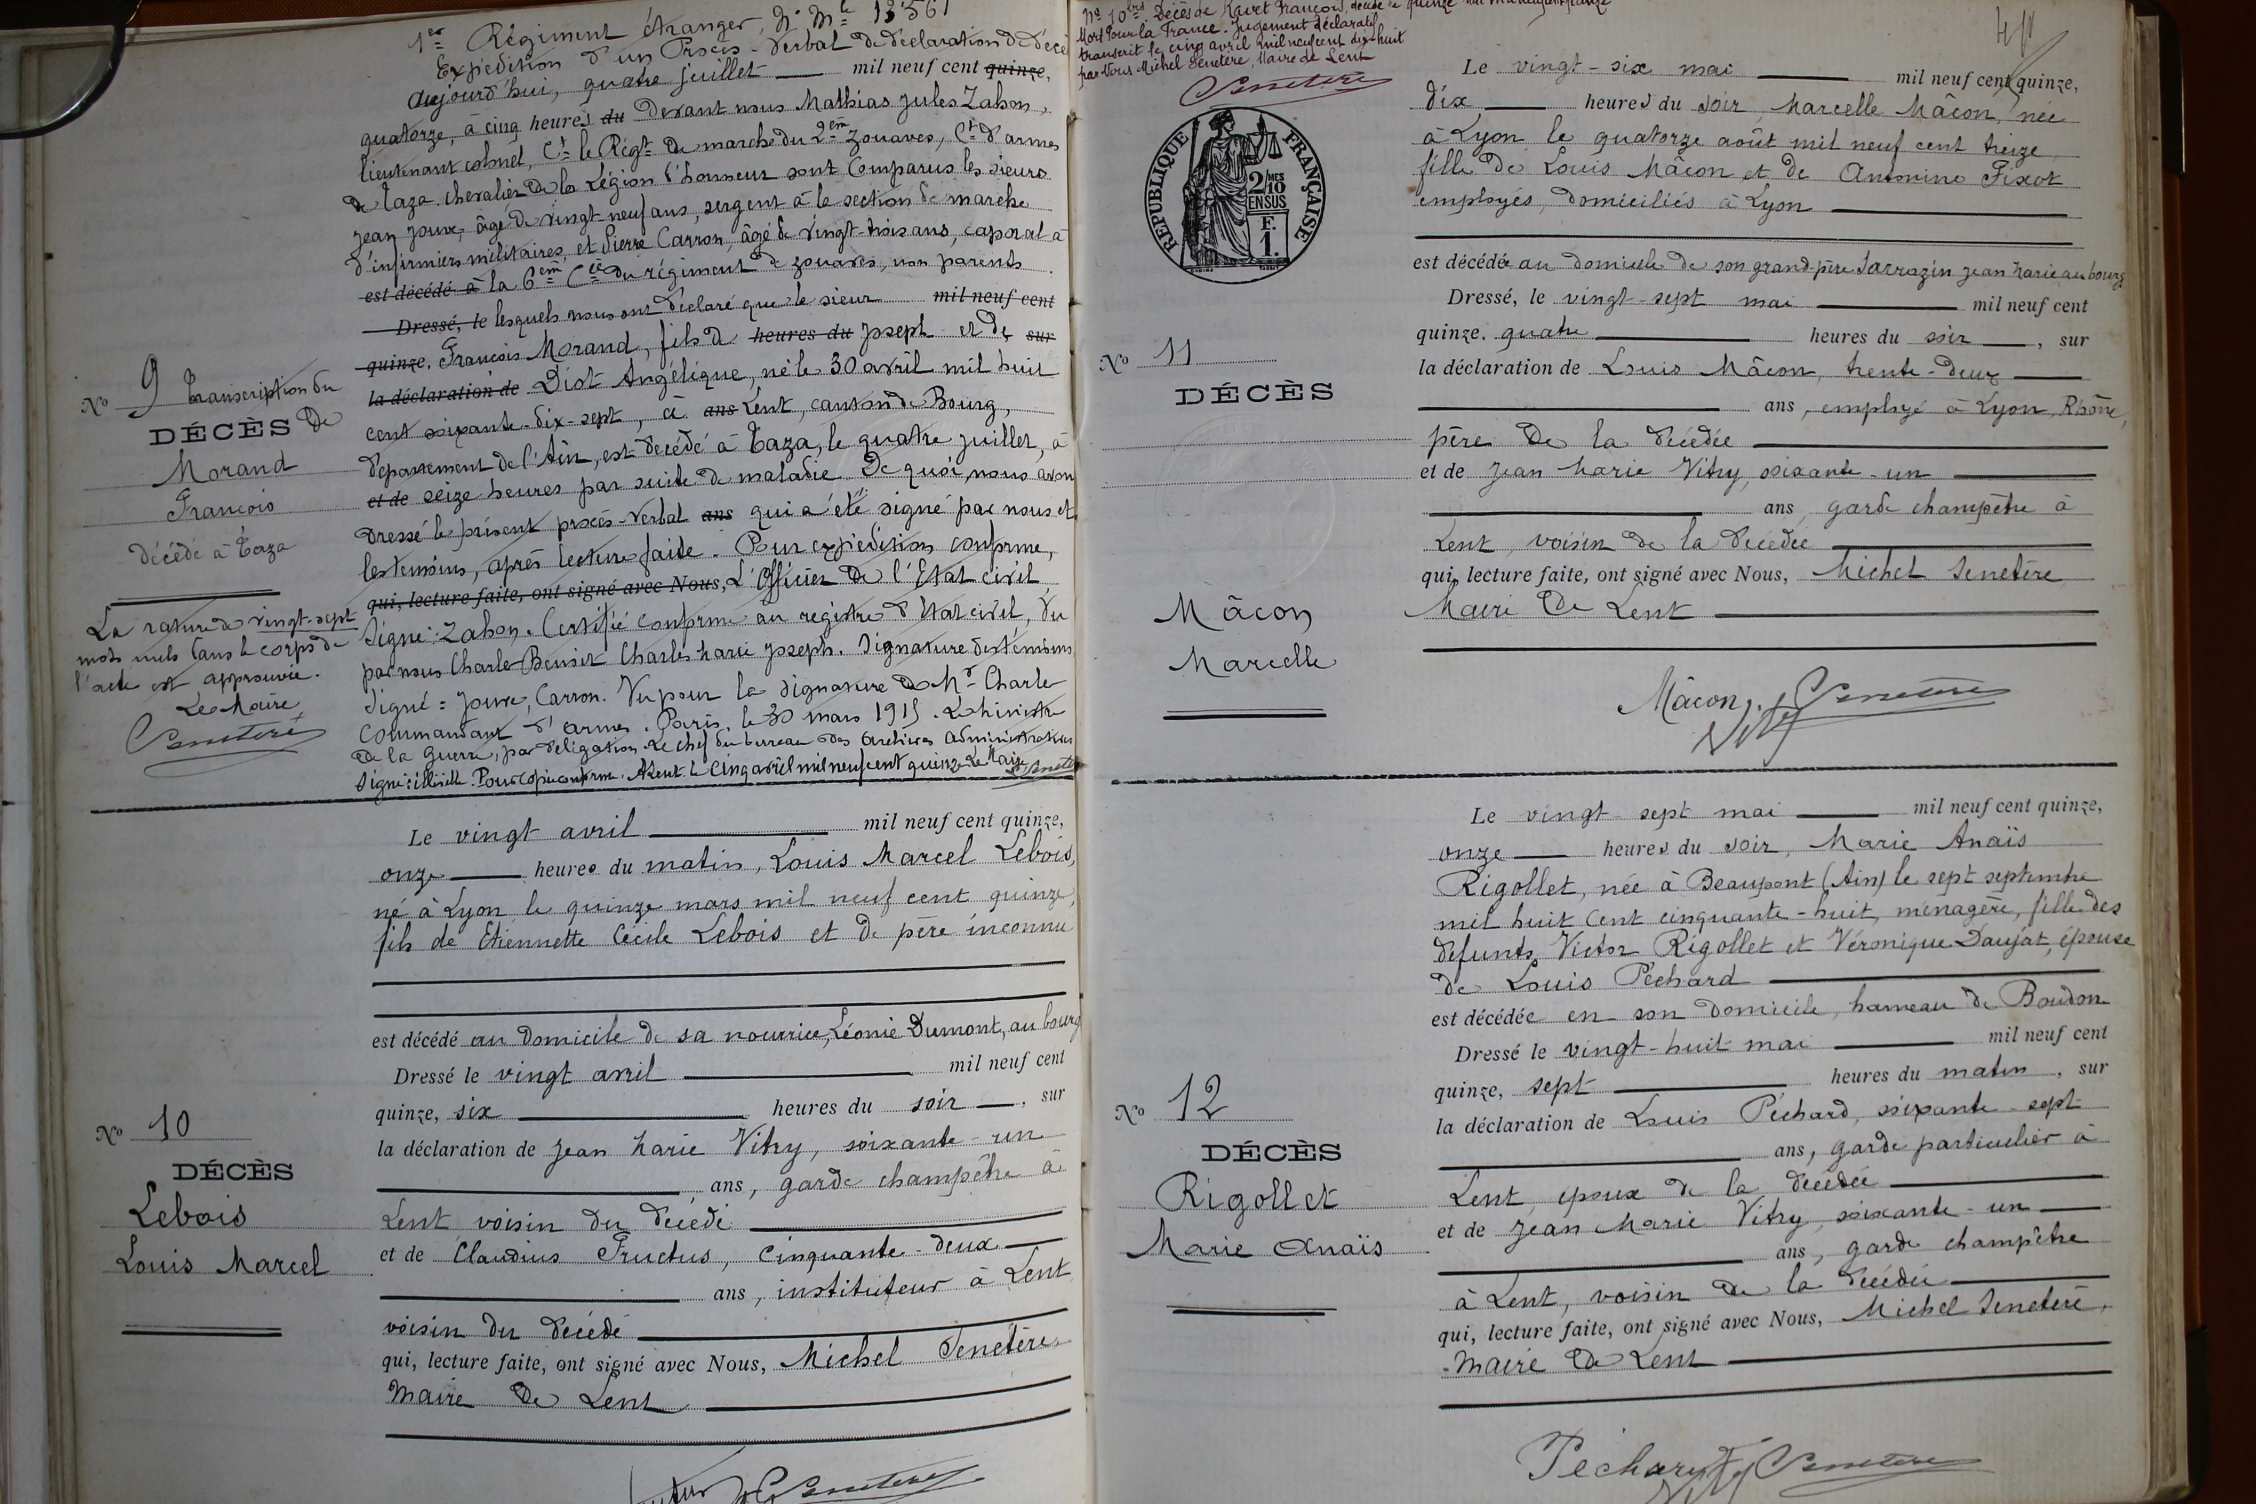 1er Régiment étranger, N° Mle 13561
Expédition d'un Procès-Verbal de déclaration de décès
Aujourd'hui, quatre juillet mil neuf cent quinze,
quatorze, à cinq heures du Devant nous Mathias Jules Zahon,
lieutenant colonel, Ct le Régt de marche du 2ème Zouaves, Ct d'armes
de Taza, chevalier de la Légion d'honneur sont comparus les sieurs
Jean Jouve, âgé de vingt-neuf ans, sergent à la section de marche
d'infirmiers militaires, et Pierre Carron, âgé de vingt-trois ans, caporal à
est décédé à la 6ème Cie du régiment de zouaves, non parents
Dressé, le lesquels nous ont déclaré que le sieur mil neuf cent
quinze. François Morand, fils de heures du Joseph et de sur
la déclaration de Diot Angélique, né le 30 avril mil huit
cent soixante-dix-sept, à ans Lent, canton de Bourg,
département de l'Ain, est décédé à Taza, le quatre juillet, à
et de seize heures par suite de maladie. De quoi, nous avons
dressé le présent procès-verbal ans qui a été signé par nous et
les témoins, après lecture faite. Pour expédition conforme,
qui, lecture faite, ont signé avec Nous, L'Officier de l'Etat civil
Signé: Zahon. Certifié conforme au registre d'Etat civil, Vu
par nous Charles Benoit Charles Marie Joseph. Signature des témoins
Signé: Jouve, Carron. Vu pour la signature de Mr Charles
Commandant d'armes. Paris, le 30 mars 1915. Le Ministre
de la guerre, par délégation le chef du bureau des Archives Administratives
Signé: illisible. Pour copie conforme. A Lent le cinq avril mil neuf cent quinze Le Maire
Senetère
No 9 Transcription du
DÉCÈS de
Morand
François
décédé à Taza
La rature de vingt-sept
mots nuls dans le corps de
l'acte est approuvée.
Le Maire,
Senetère
Le vingt avril mil neuf cent quinze,
onze heures du matin, Louis Marcel Lebois,
né à Lyon le quinze mars mil neuf cent quinze,
fils de Etiennette Cécile Lebois et de père inconnu
est décédé au domicile de sa nourrice, Léonie Dumont, au bourg
Dressé le vingt avril mil neuf cent
quinze, six heures du soir, sur
la déclaration de Jean Marie Vitry, soixante-un
ans, garde champêtre à
Lent voisin du décédé
et de Claudius Fructus, cinquante-deux
ans, instituteur à Lent
voisin du décédé
qui, lecture faite, ont signé avec Nous, Michel Senetère
maire de Lent
No 10
DÉCÈS
Lebois
Louis Marcel
Senetère
No 10 bis Décès de Ravet François, décédé le quinze mai
Mort pour la France. Jugement déclaratif
transcrit le cinq avril mil neuf cent dix-huit
par Nous Michel Senetère, Maire de Lent
Senetère
RÉPUBLIQUE FRANÇAISE
2 MES
10
EN SUS
F.
1.
Le vingt-six mai mil neuf cent quinze,
dix heures du soir, Marcelle Mâcon, née
à Lyon le quatorze août mil neuf cent treize
fille de Louis Mâcon et de Antonine Fixot
employés, domiciliés à Lyon
est décédée au domicile de son grand-père Sarrazin Jean Marie au bourg
Dressé, le vingt-sept mai mil neuf cent
quinze. quatre heures du soir, sur
la déclaration de Louis Mâcon, trente-deux
ans, employé à Lyon, Rhône,
père de la décédée
et de Jean Marie Vitry, soixante-un
ans, garde champêtre à
Lent, voisin de la décédée
qui, lecture faite, ont signé avec Nous, Michel Senetère
Maire de Lent
No 11
DÉCÈS
Mâcon
Marcelle
Mâcon. Senetère
Vitry
Le vingt-sept mai mil neuf cent quinze,
onze heures du soir, Marie Anaïs
Rigollet, née à Beaupont (Ain) le sept septembre
mil huit cent cinquante-huit, ménagère, fille des
défunts Victor Rigollet et Véronique Daujat, épouse
de Louis Péchard
est décédée en son domicile, hameau de Boudon
Dressé le vingt-huit mai mil neuf cent
quinze, sept heures du matin, sur
la déclaration de Louis Péchard, soixante-sept
ans, garde particulier à
Lent, époux de la décédée
et de Jean Marie Vitry, soixante-un
ans, garde champêtre
à Lent, voisin de la décédée
qui, lecture faite, ont signé avec Nous, Michel Senetère,
maire de Lent
No 12
DÉCÈS
Rigollet
Marie Anaïs
Péchard Senetère
Vitry